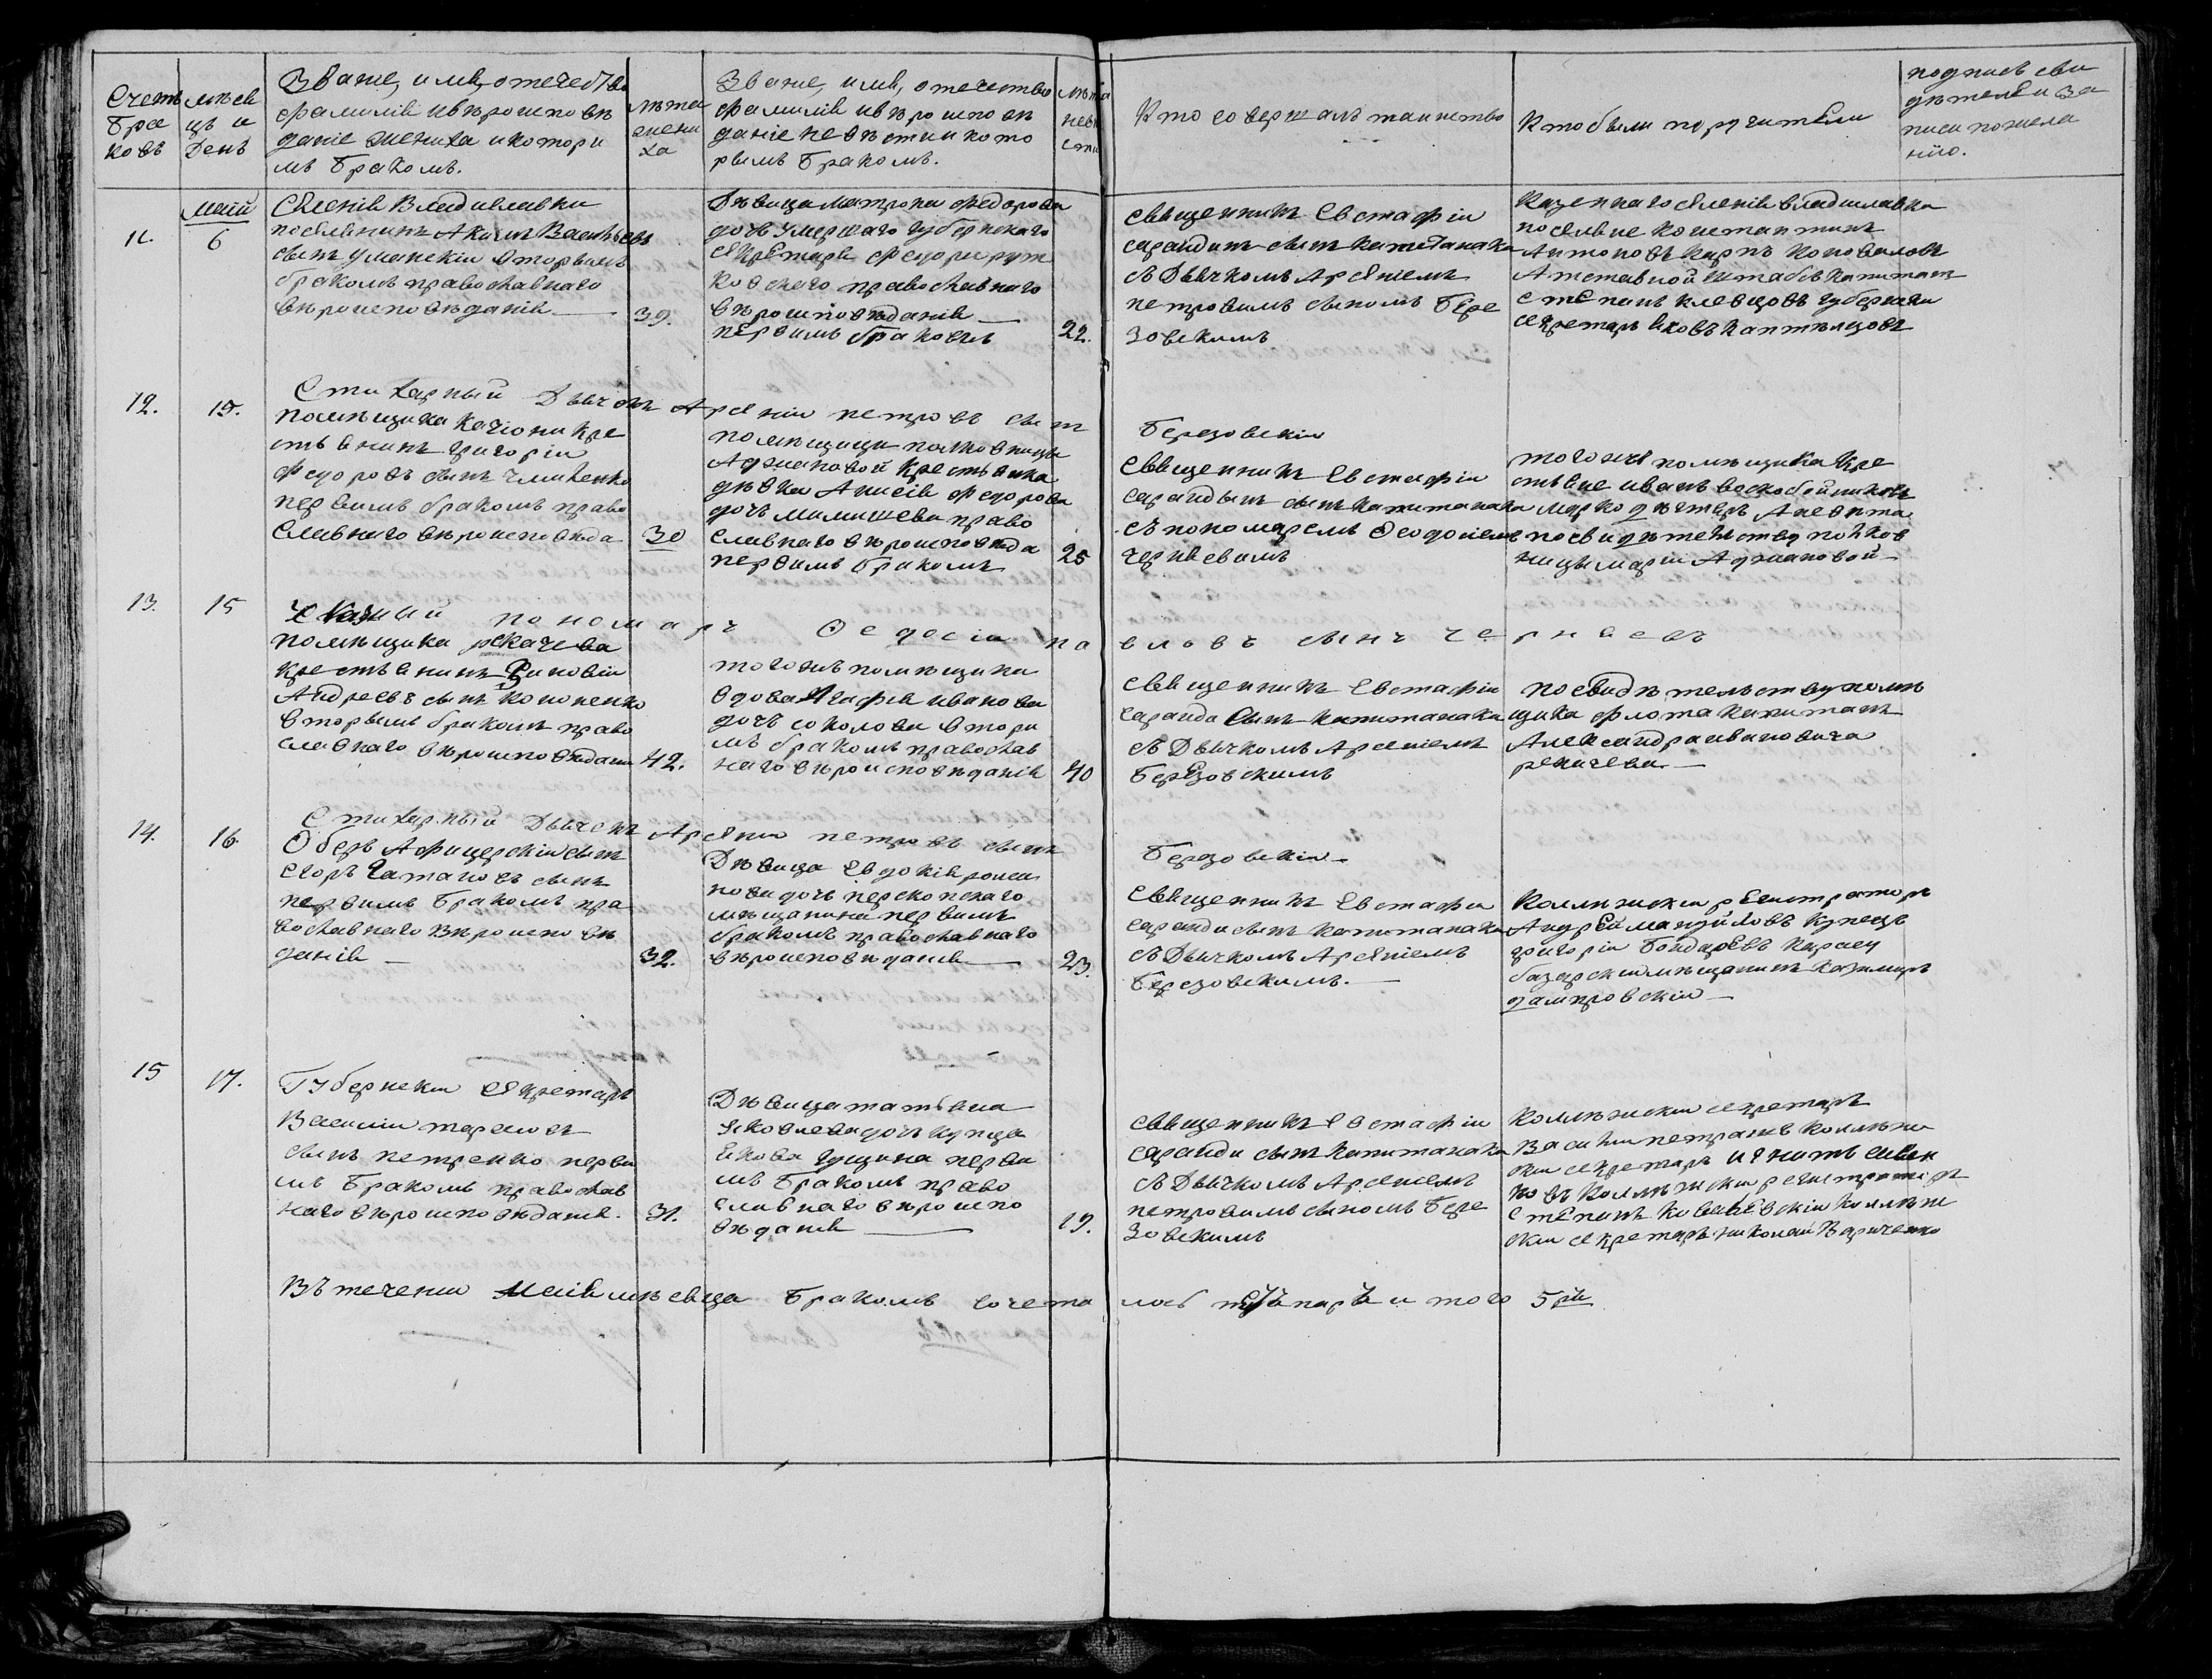 Счетъ
бра
ковъ
мѣся
цъ и
День
Званіе, имя, отечество
фамилія и вѣроисповѣ
даніе жениха и котори
мъ бракомъ.
лѣта
жени
ха
Званіе, имя, отечество
фамилія и вѣроисповѣ
даніе невѣсти и кото
рымъ бракомъ.
лѣта
невѣ
сти
Кто совершалъ таинство
Кто были поручители
подпись сви
дѣтелей за
писи по жела
нію.
11.
маія
6
Селенія Владиславки
поселянинъ Акимъ Васильевъ
сынъ Уманскіи вторымъ
бракомъ православнаго
вѣроисповѣданія
39.
Дѣвица матрона федорова
дочь умершаго губернскаго
секретаря федора
православнаго
вѣроисповѣданія
первимъ бракомъ
22.
священникъ Евстафіи
сарандинъ сынъ капитанаки
съ Дьячкомъ Арсеніемъ
петровимъ сыномъ Бере
зовскимъ
Казеннаго селенія владиславка
поселяне константинъ
Антоновъ карпъ коноваловъ
Атставной штабсъ капитанъ
степанъ клевцовъ губернски
секретарь яковъ
12.
15.
Стихарный Дьячокъ Арсеніи петровъ сын
Березовскіи
помѣщика качіони кре
стьянинъ григоріи
федоровъ сынъ чмиленко
первимъ бракомъ право
славнаго вѣроисповѣда
30
помѣщици полковницы
Аджановой крестьянка
дѣвка Анисія федорова
дочь право
славнаго вѣроисповѣда
первимъ бракомъ
25
священникъ Евстафіи
сарандынъ сынъ капитанаки
съ пономаремъ Феодосіемъ
чернѣевимъ
тогоже помѣщика кре
стьяне иванъ воскобойниковъ
марко
по свидѣтельству полков
ницы маріи Аджановой
13.
15
Указный пономаръ Ѳедосіи павловъ сынъ чернѣевъ
помѣщика рекачева
крестьянинъ Зиновіи
Андреевъ сынъ кононенко
вторымъ бракомъ право
славнаго вѣроисповѣдани
42.
тогожъ помѣщика
вдова Агафія иванова
дочь соколова втори
мъ бракомъ православ
наго вѣроисповѣданія
40
священникъ Евстафіи
саранди сынъ капитанаки
съ Дьячкомъ Арсеніемъ
Березовскимъ
по свидѣтельству помѣ
щика флота капитанъ
Александра ивановича
рекачева
14.
16.
Стихарный Дьячекъ Арсени петровъ сынъ
Березовскіи
Оберъ Афицерскіи сынъ
Егоръ сынъ
первимъ бракомъ пра
вославнаго вѣроисповѣ
данія
32.
Дѣвица Евдокія рома
нова дочь перекопскаго
мѣщанина первимъ
бракомъ православнаго
вѣроисповѣданія
23.
священникъ Евстафи
саранди сынъ капитанаки
съ Дьячкомъ Арсеніемъ
Березовскимъ.
Колѣжски регистраторъ
Андрей мануйловъ купецъ
григоріи Бондаревъ карасу
базарскіи мѣщанинъ казимиръ
домировскіи
15
17.
Губернски секретарь
Василіи тарасовъ
сынъ петренко перви
мъ бракомъ православ
наго вѣроисповѣданія.
31.
Дѣвица татьяна
яковлева дочь купца
якова гущина перви
мъ бракомъ право
славнаго вѣроиспо
вѣданія
19.
священникъ Евстафіи
саранди сынъ капитанаки
съ Дьячкомъ Арсеніемъ
петровимъ сыномъ Бере
зовскимъ
колѣжски секретарь
Василіи петрашъ колѣж
ски секретарь игнатъ
колѣжски регистраторъ
степанъ колѣж
ски секретарь николай
Въ теченіи маія мѣсяца бракомъ сочеталось пять паръ и того 5ри